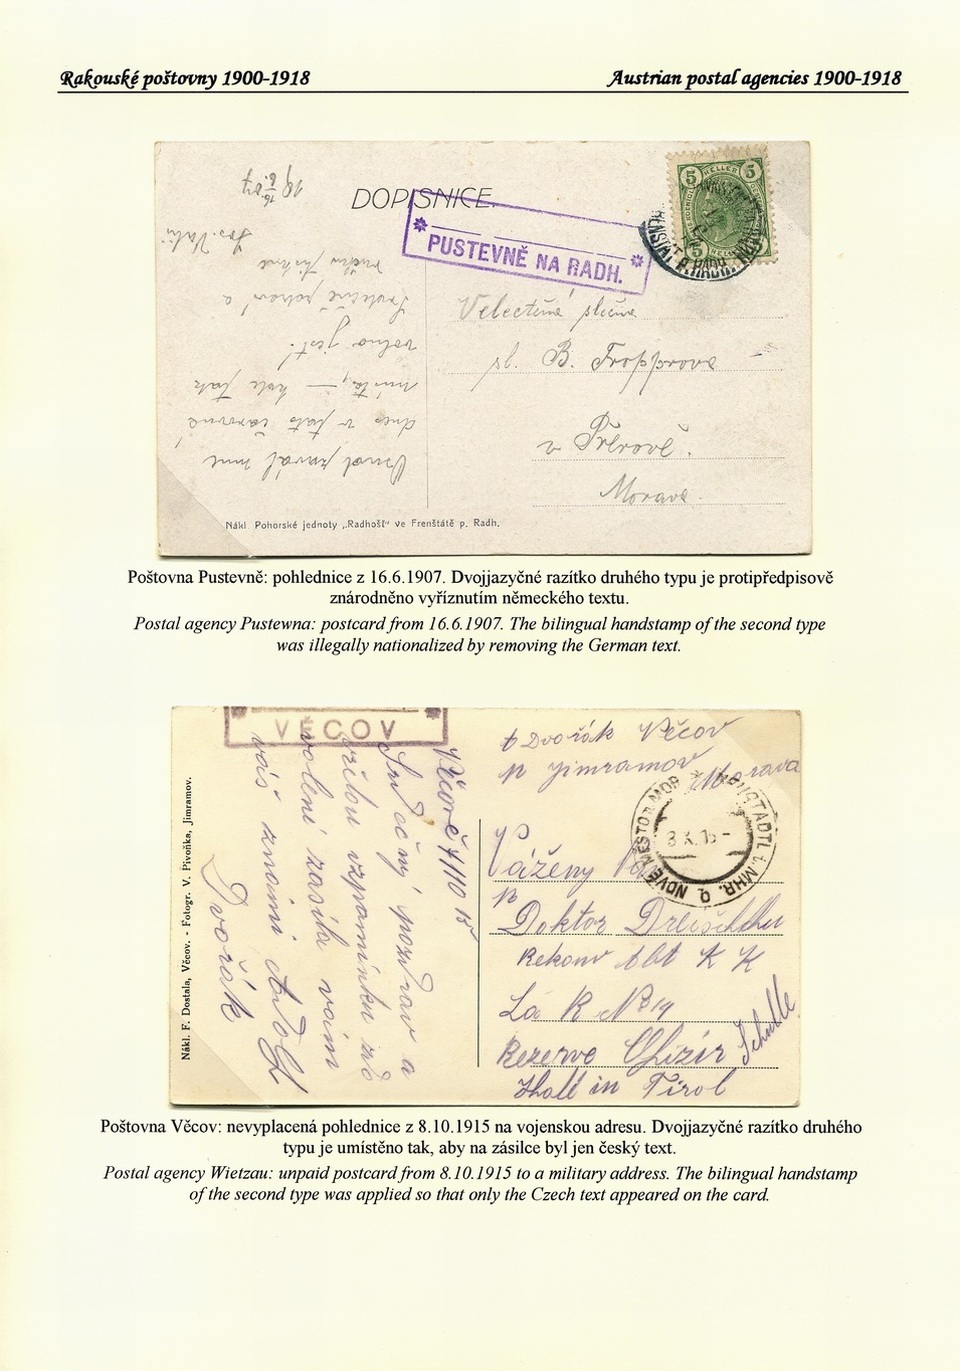 Rakouské poštovny 1900-1918
Austrian postal agencies 1900-1918
16.
6. 07
DOPISNICE.
PUSTEVNĚ NA RADH.
5 HELLER 5
Velectěná slečna
sl. B. Fropprova
v Přerově.
Morava.
dnes v tato
volno jest!
Nákl. Pohorské jednoty „Radhošť" ve Frenštátě p. Radh.
Poštovna Pustevně: pohlednice z 16.6.1907. Dvojjazyčné razítko druhého typu je protipředpisově
znárodněno vyříznutím německého textu.
Postal agency Pustewna: postcard from 16.6.1907. The bilingual handstamp of the second type
was illegally nationalized by removing the German text.
VĚCOV
Dvořák Věcov
p Jimramov
Morava
NOVÉ MĚSTO n. MOR. * NEUSTADTL i. MHR.
8 X. 15
Věcově 7/10 15
Srdečný pozdrav a
vzpomínku
zasílá vám
váš známi Adolf
Dvořák
Vážený
Doktor
K K
La R No 19
Rezerve Ofizír Schule
Hall in Tirol
Nákl. F. Dostala, Věcov. - Fotogr. V. Pivoňka, Jimramov.
Poštovna Věcov: nevyplacená pohlednice z 8.10.1915 na vojenskou adresu. Dvojjazyčné razítko druhého
typu je umístěno tak, aby na zásilce byl jen český text.
Postal agency Wietzau: unpaid postcard from 8.10.1915 to a military address. The bilingual handstamp
of the second type was applied so that only the Czech text appeared on the card.